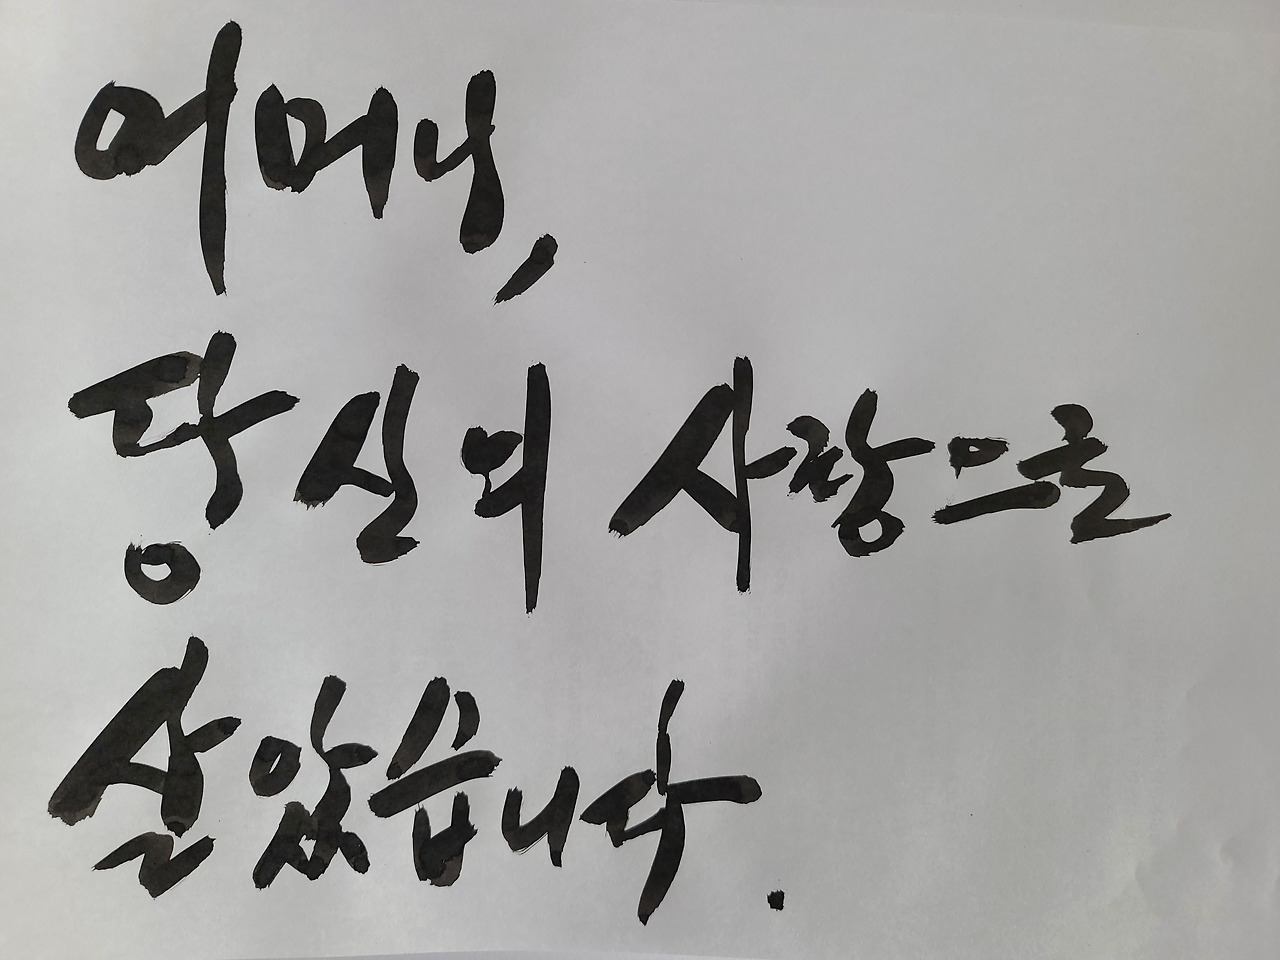 어머니,
당신의 사랑으로
살았습니다.